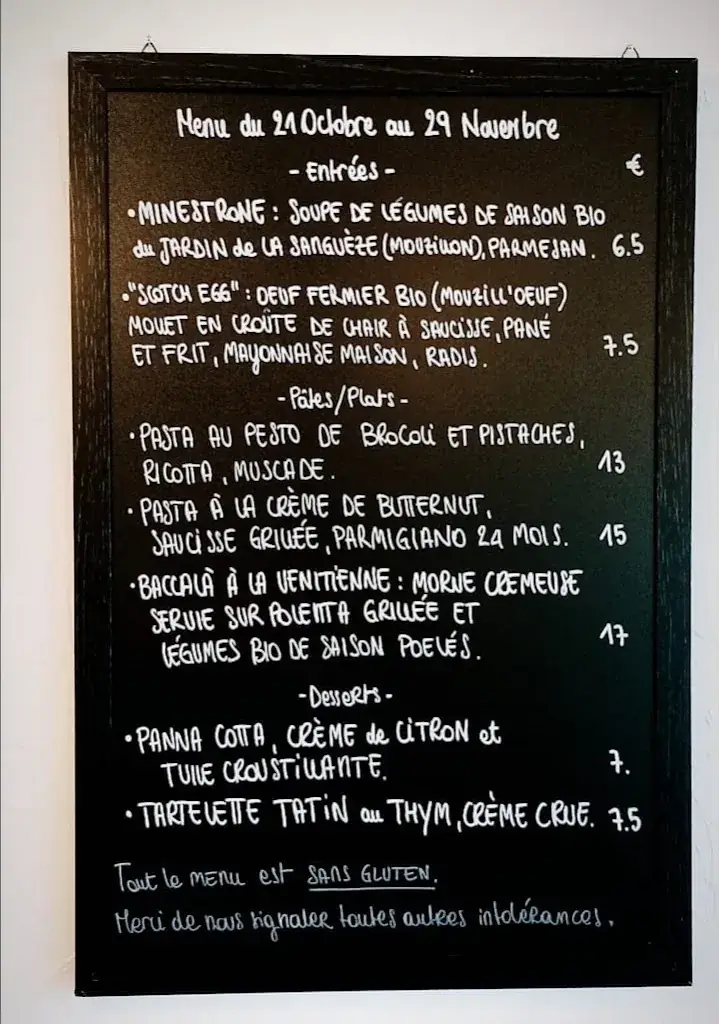 Menu du 21 Octobre au 29 Novembre
- Entrées - €
• MINESTRONE : SOUPE DE LÉGUMES DE SAISON BIO
du JARDIN de LA SANGUÈZE (MOUZILLON), PARMESAN. 6.5
• "SCOTCH EGG" : OEUF FERMIER BIO (MOUZILL'OEUF)
MOLLET EN CROÛTE DE CHAIR À SAUCISSE, PANÉ
ET FRIT, MAYONNAISE MAISON, RADIS. 7.5
- Pâtes/Plats -
• PASTA AU PESTO DE BROCOLI ET PISTACHES,
RICOTTA, MUSCADE. 13
• PASTA À LA CRÈME DE BUTTERNUT,
SAUCISSE GRILLÉE, PARMIGIANO 24 MOIS. 15
• BACCALÀ À LA VENITIENNE : MORUE CREMEUSE
SERVIE SUR POLENTA GRILLÉE ET
LÉGUMES BIO DE SAISON POELÉS. 17
- Desserts -
• PANNA COTTA, CRÈME de CITRON et
TUILE CROUSTILLANTE. 7.
• TARTELETTE TATIN au THYM, CRÈME CRUE. 7.5
Tout le menu est SANS GLUTEN.
Merci de nous signaler toutes autres intolérances.